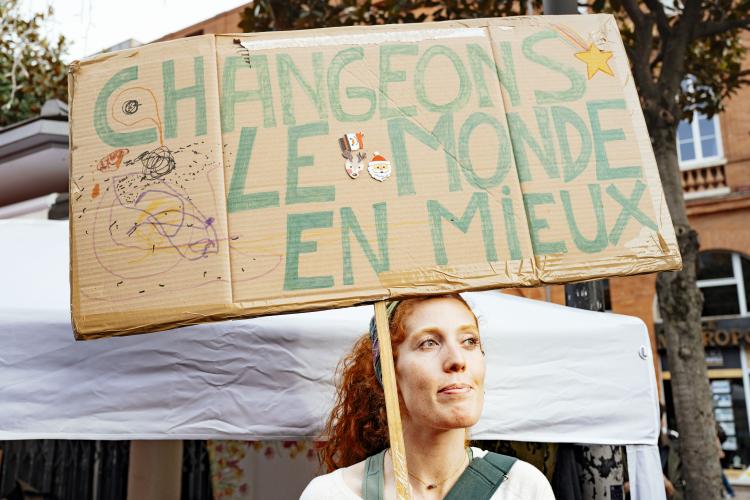 CHANGEONS
LE MONDE
EN MiEUX